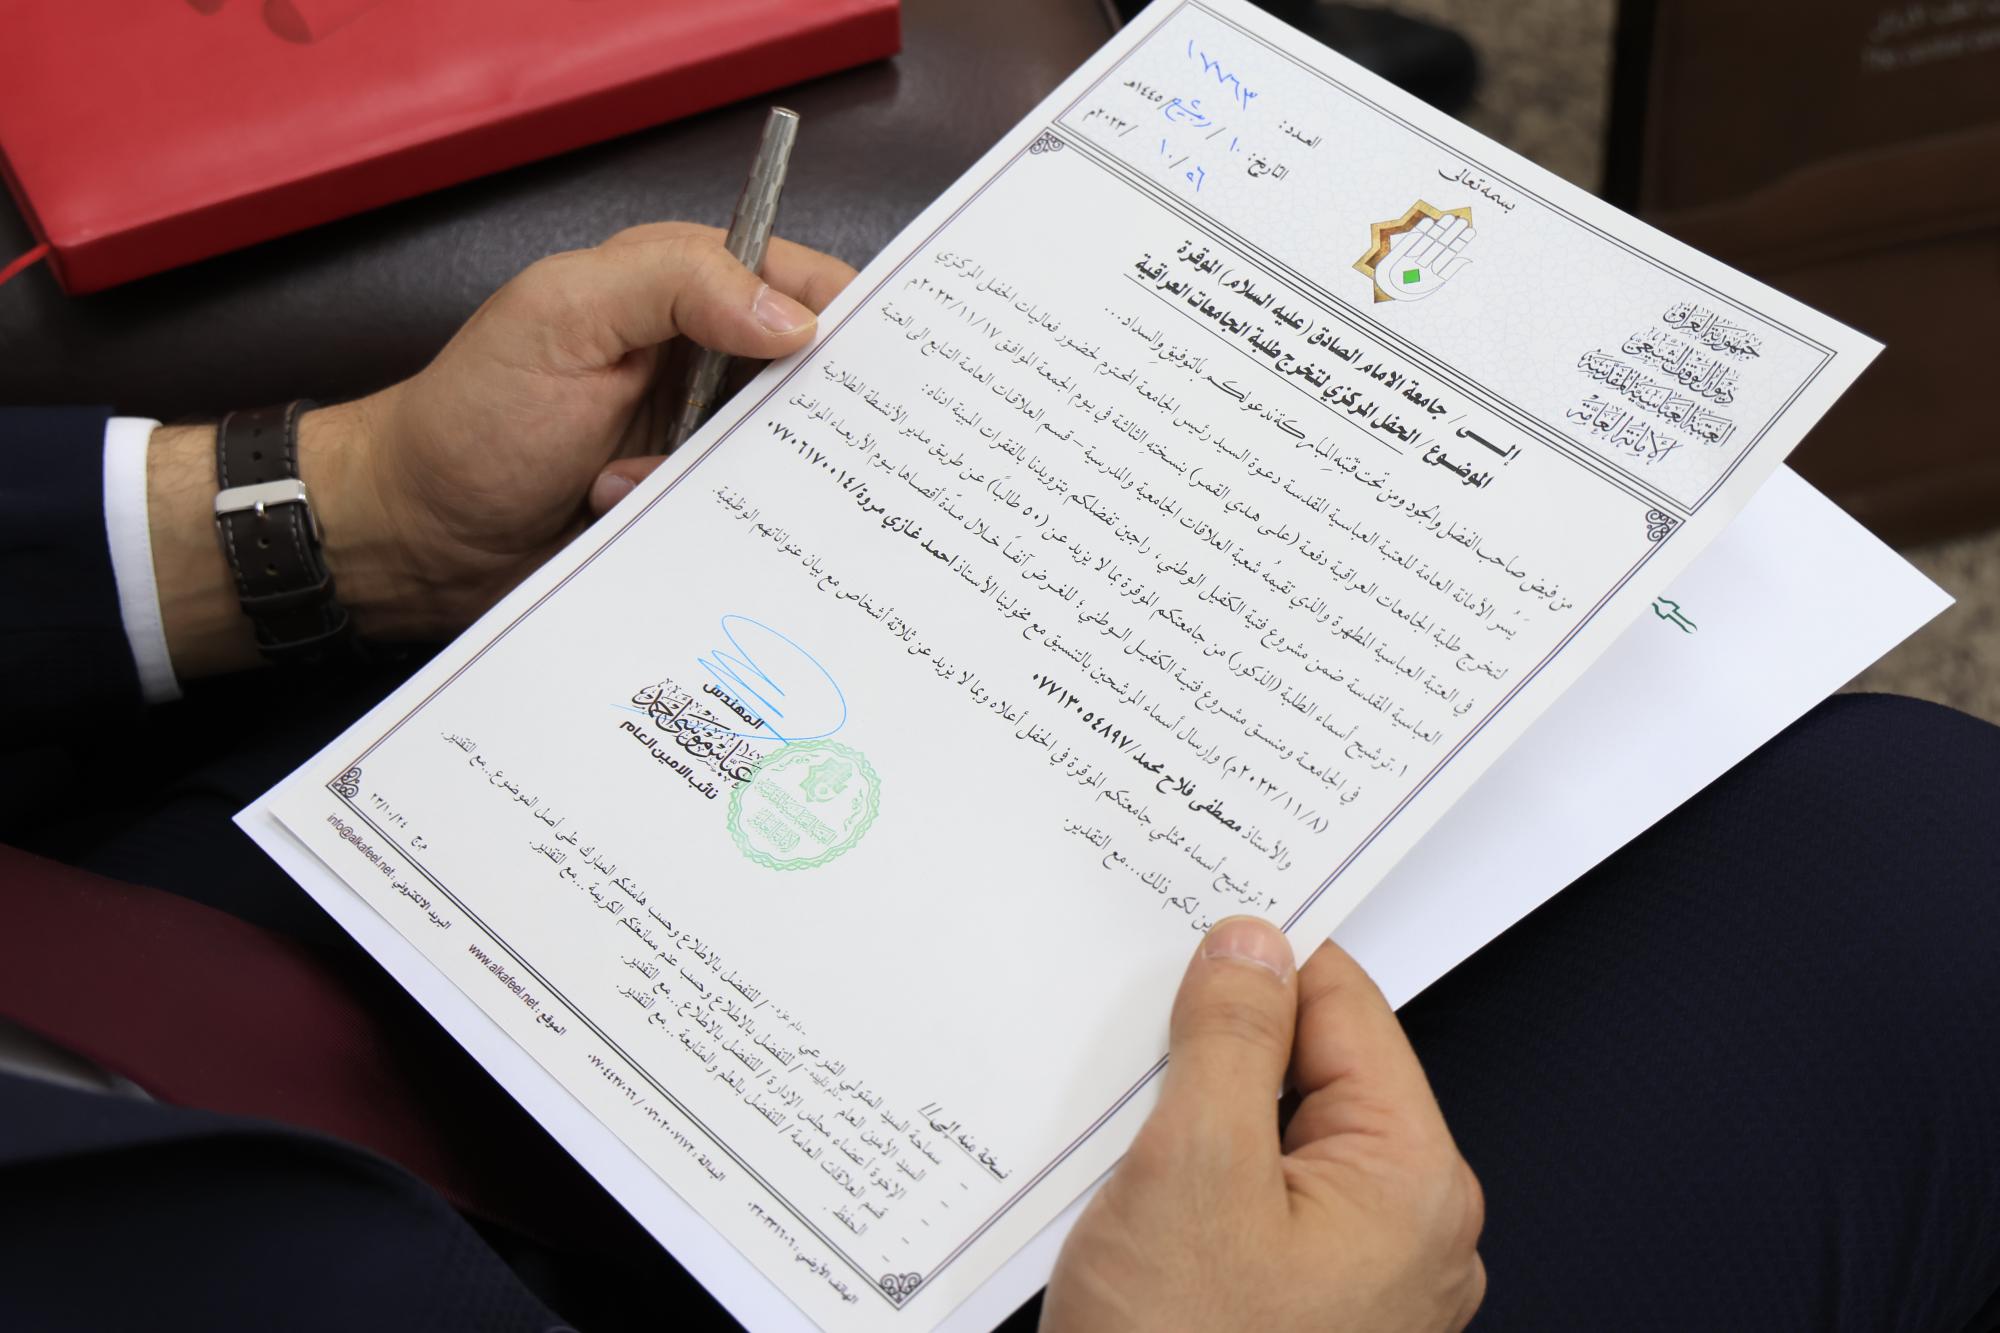 بسمه تعالى
جمهورية العراق
ديوان الوقف الشيعي
العتبة العباسية المقدسة
الأمانة العامة
العدد: ١٧٧٦٣
التاريخ: ١٠ / ربيع٢ /١٤٤٥هـ
٢٦/ ١٠ /٢٠٢٣م
إلــى / جامعة الامام الصادق (عليه السلام) الموقرة
الموضوع/ الحفل المركزي لتخرج طلبة الجامعات العراقية
من فيض صاحب الفضل والجود ومن تحت قبّته المباركة ندعو لكم بالتوفيق والسداد...
يَسُر الأمانة العامة للعتبة العباسية المقدسة دعوة السيد رئيس الجامعة المحترم لحضور فعاليات الحفل المركزي
لتخرج طلبة الجامعات العراقية دفعة (على هدي القمر) بنسخته الثالثة في يوم الجمعة الموافق ٢٠٢٣/١١/١٧م
في العتبة العباسية المطهرة والذي تقيمُه شعبة العلاقات الجامعية والمدرسية – قسم العلاقات العامة التابع الى العتبة
العباسية المقدسة ضمن مشروع فتية الكفيل الوطني، راجين تفضلكم بتزويدنا بالفقرات المبينة ادناه:
١. ترشيح أسماء الطلبة (الذكور) من جامعتكم الموقرة بما لا يزيد عن (٥٠ طالباً) عن طريق مدير الأنشطة الطلابية
في الجامعة ومنسق مشروع فتية الكفيل الوطني؛ للغرض آنفاً خلال مدّة أقصاها يوم الأربعاء الموافق
(٢٠٢٣/١١/٨م) وإرسال أسماء المرشحين بالتنسيق مع مخولينا الأستاذ احمد غازي مروة/٠٧٧٠٦١٧٠٠١٤
والأستاذ مصطفى فلاح محمد/٠٧٧١٣٠٥٤٨٩٧
٢. ترشيح أسماء ممثلي جامعتكم الموقرة في الحفل أعلاه وبما لا يزيد عن ثلاثة أشخاص مع بيان عنواناتهم الوظيفية.
ين لكم ذلك...مع التقدير.
المهندس
عباس موسى احمد
نائب الامين العام
العتبة العباسية المقدسة
الأمانة العامة
نسخة منه إلى//
- سماحة السيد المتولي الشرعي - دام عزه - / للتفضل بالاطلاع وحسب هامشكم المبارك على أصل الموضوع...مع التقدير.
- السيد الأمين العام - دام تأييده - / للتفضل بالاطلاع وحسب عدم ممانعتكم الكريمة ...مع التقدير.
- الإخوة أعضاء مجلس الإدارة / للتفضل بالاطلاع...مع التقدير.
- قسم العلاقات العامة / للتفضل بالعلم والمتابعة ...مع التقدير.
- الحفظ .
م.ج ٢٣/١٠/٢٤
الهاتف الأرضي:
البدالة:
الموقع : www.alkafeel.net
البريد الالكتروني : info@alkafeel.net